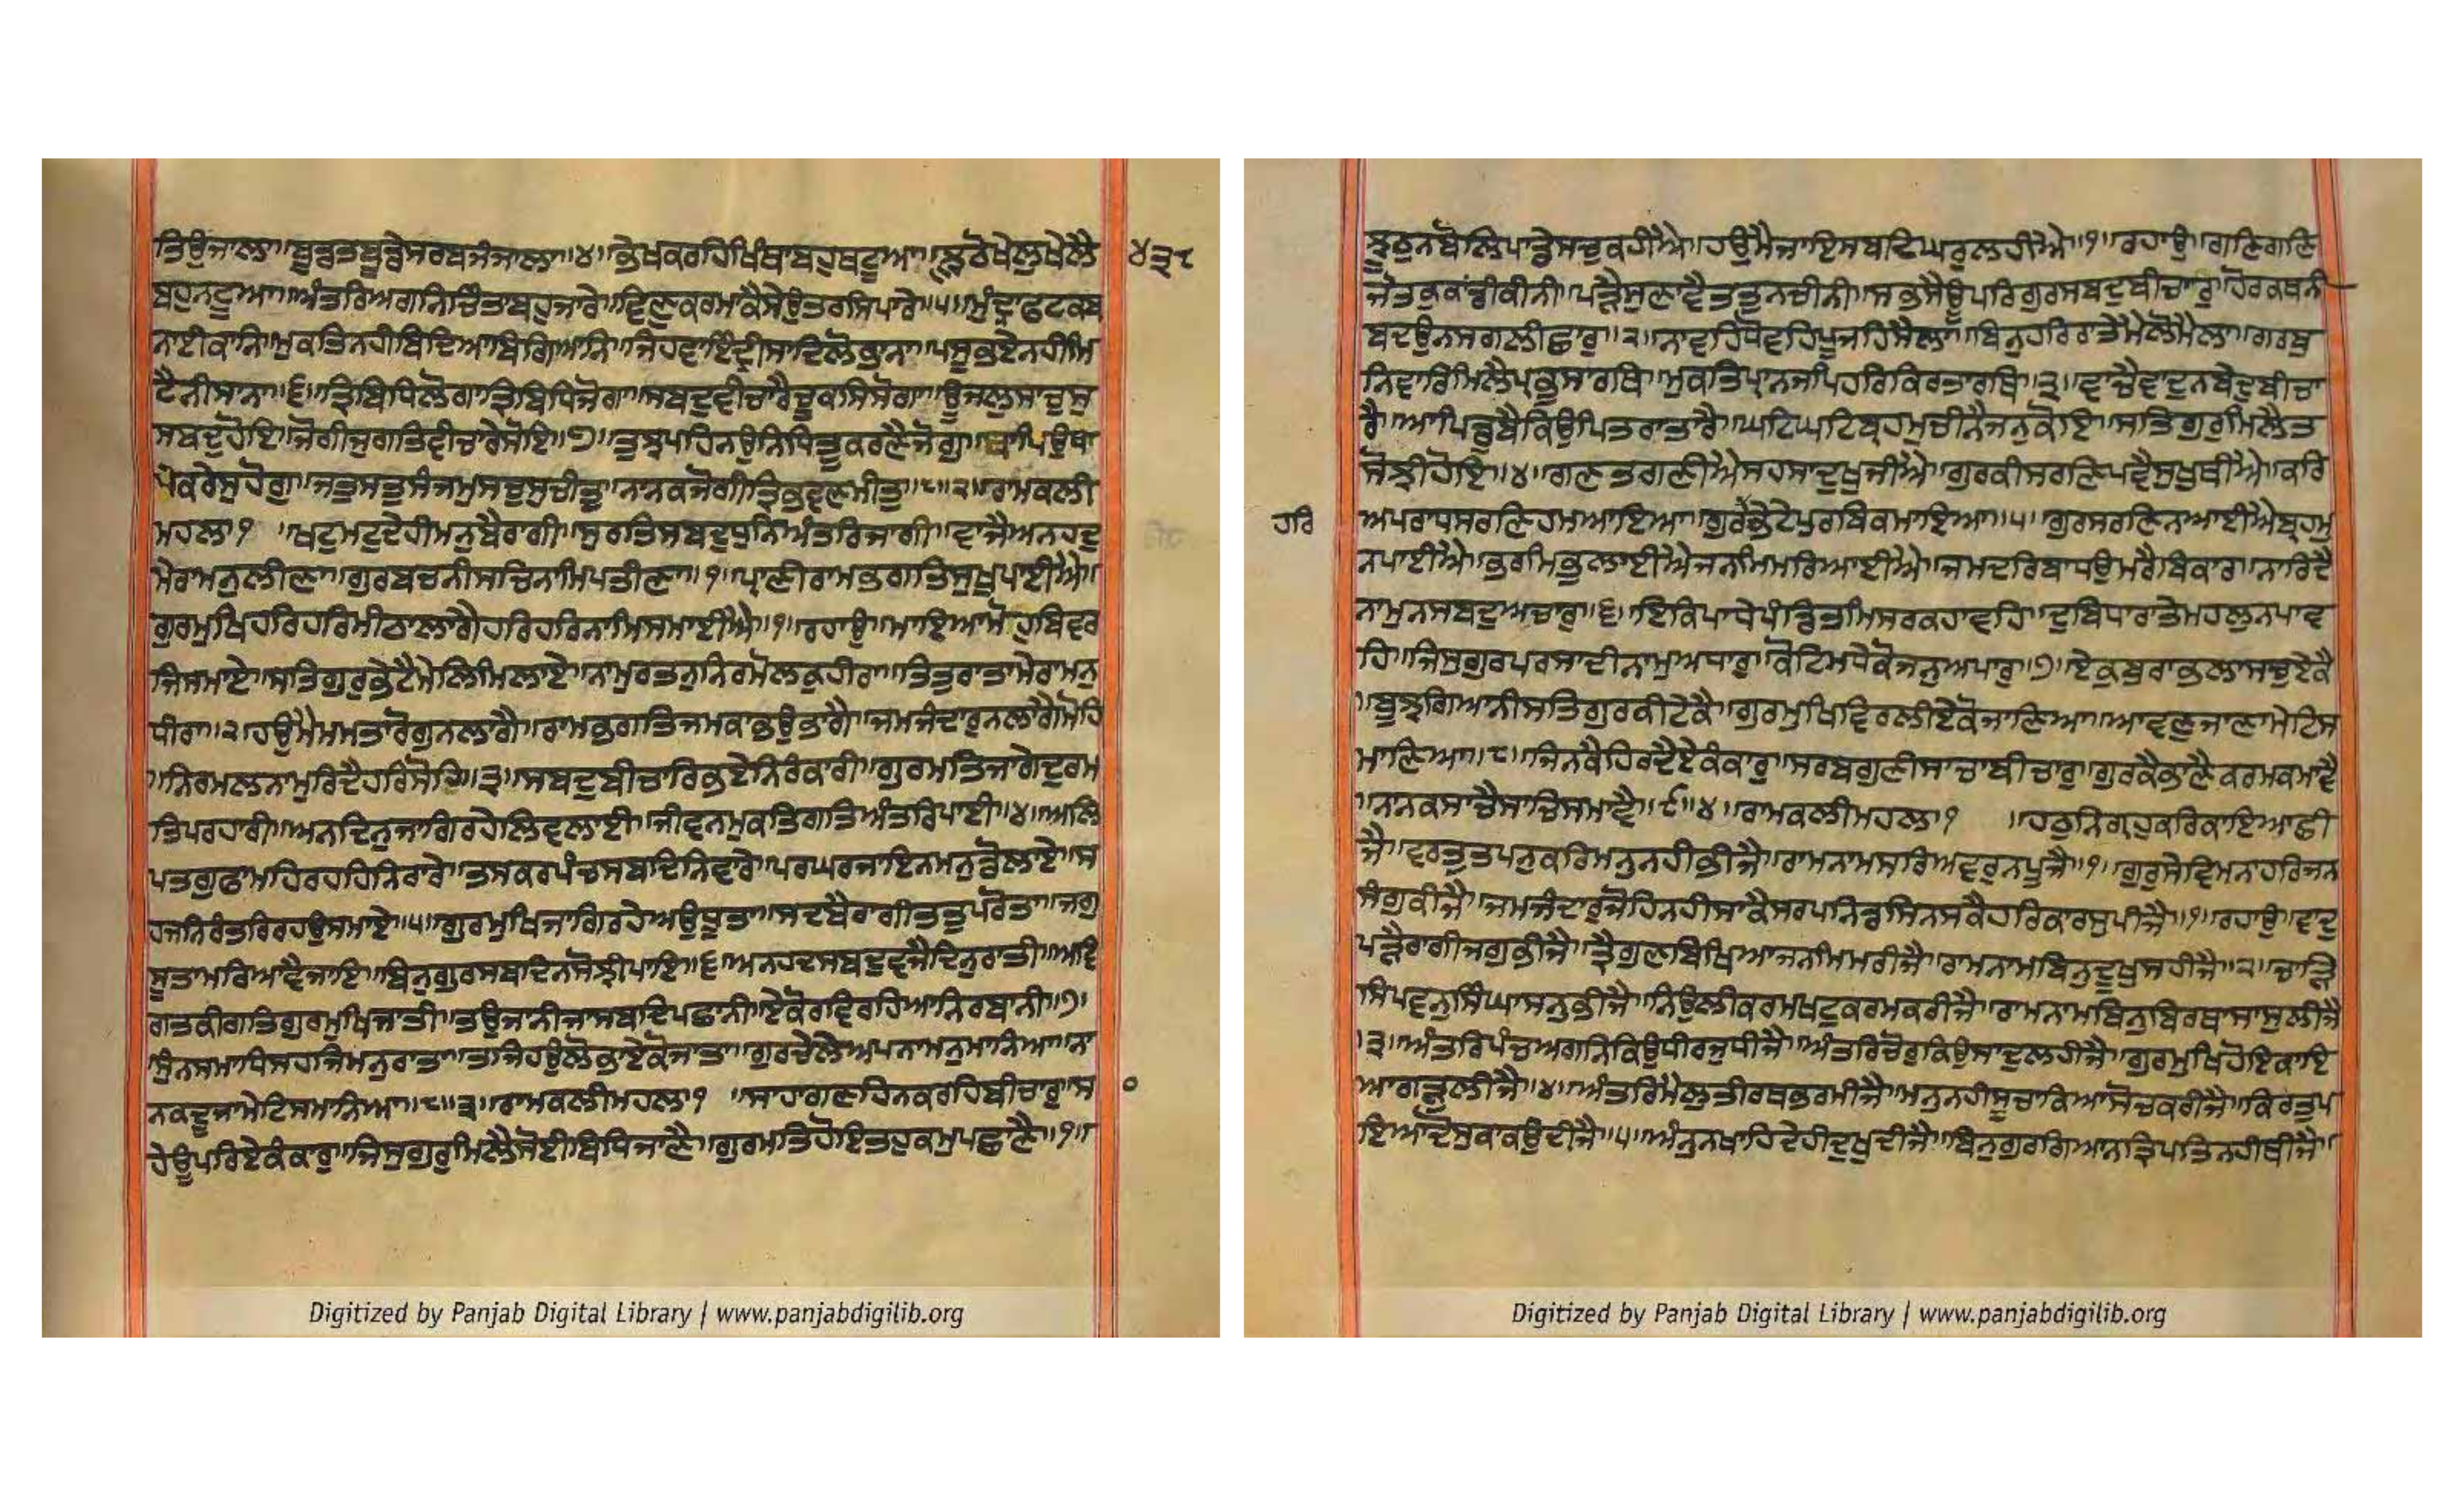 ਤਿਉਜਾਲਾ॥ਬੂਡਤਬੂਡੇਸਰਬਜੰਜਾਲਾ॥੪॥ਭੇਖਕਰਹਿਖਿੰਥਾਬਹੁਥਟੂਆ॥ਝੂਠੋਖੇਲੁਖੇਲੈ
੪੩੮
ਬਹੁਨਟੂਆ॥ਅੰਤਰਿਅਗਨਿਚਿੰਤਾਬਹੁਜਾਰੇ॥ਵਿਣੁਕਰਮਾਕੈਸੇਉਤਰਸਿਪਾਰੇ॥੫॥ਮੁੰਦ੍ਰਾਫਟਕਬ
ਨਾਈਕਾਨਿ॥ਮੁਕਤਿਨਹੀਬਿਦਿਆਬਿਗਿਆਨਿ॥ਜਿਹਵਾਇੰਦ੍ਰੀਸਾਦਿਲੋਭਾਨਾ॥ਪਸੂਭਏਨਹੀਮਿ
ਟੈਨੀਸਾਨਾ॥੬॥ਤ੍ਰਿਬਿਧਿਲੋਗਾਤ੍ਰਿਬਿਧਿਜੋਗਾ॥ਸਬਦੁਵੀਚਾਰੈਚੂਕਸਿਸੋਗਾ॥ਊਜਲੁਸਾਚੁਸੁ
ਸਬਦੁਹੋਇ॥ਜੋਗੀਜੁਗਤਿਵੀਚਾਰੇਸੋਇ॥੭॥ਤੁਝਪਹਿਨਉਨਿਧਿਤੂਕਰਣੈਜੋਗੁ॥ਥਾਪਿਉਥਾ
ਪੇਕਰੇਸੁਹੋਗੁ॥ਜਤੁਸਤੁਸੰਜਮੁਸਚੁਸੁਚੀਤੁ॥ਨਾਨਕਜੋਗੀਤ੍ਰਿਭਵਣਮੀਤੁ॥੮॥੨॥ਰਾਮਕਲੀ
ਮਹਲਾ੧ ॥ਖਟੁਮਟੁਦੇਹੀਮਨੁਬੈਰਾਗੀ॥ਸੁਰਤਿਸਬਦੁਧੁਨਿਅੰਤਰਿਜਾਗੀ॥ਵਾਜੈਅਨਹਦੁ
ਮੇਰਾਮਨੁਲੀਣਾ॥ਗੁਰਬਚਨੀਸਚਿਨਾਮਿਪਤੀਣਾ॥੧॥ਪ੍ਰਾਣੀਰਾਮਭਗਤਿਸੁਖੁਪਾਈਐ॥
ਗੁਰਮੁਖਿਹਰਿਹਰਿਮੀਠਾਲਾਗੈਹਰਿਹਰਿਨਾਮਿਸਮਾਈਐ॥੧॥ਰਹਾਉ॥ਮਾਇਆਮੋਹੁਬਿਵਰ
ਜਿਸਮਾਏ॥ਸਤਿਗੁਰੁਭੇਟੈਮੇਲਿਮਿਲਾਏ॥ਨਾਮੁਰਤਨੁਨਿਰਮੋਲਕੁਹੀਰਾ॥ਤਿਤੁਰਾਤਾਮੇਰਾਮਨੁ
ਧੀਰਾ॥੨॥ਹਉਮੈਮਮਤਾਰੋਗੁਨਲਾਗੈ॥ਰਾਮਭਗਤਿਜਮਕਾਭਉਭਾਗੈ॥ਜਮਜੰਦਾਰੁਨਲਾਗੈਮੋਹਿ
॥ਨਿਰਮਲਨਾਮੁਰਿਦੈਹਰਿਸੋਹਿ॥੩॥ਸਬਦੁਬੀਚਾਰਿਭਏਨਿਰੰਕਾਰੀ॥ਗੁਰਮਤਿਜਾਗੇਦੁਰਮ
ਤਿਪਰਹਾਰੀ॥ਅਨਦਿਨੁਜਾਗਿਰਹੇਲਿਵਲਾਈ॥ਜੀਵਨਮੁਕਤਿਗਤਿਅੰਤਰਿਪਾਈ॥੪॥ਅਲਿ
ਪਤਗੁਫਾਮਹਿਰਹਹਿਨਿਰਾਰੇ॥ਤਸਕਰਪੰਚਸਬਦਿਨਿਵਾਰੇ॥ਪਰਘਰਜਾਇਨਮਨੁਡੋਲਾਏ॥ਸ
ਹਜਨਿਰੰਤਰਿਰਹਉਸਮਾਏ॥੫॥ਗੁਰਮੁਖਿਜਾਗਿਰਹੇਅਉਧੂਤਾ॥ਸਦਬੈਰਾਗੀਤਤੁਪਰੋਤਾ॥ਜਗੁ
ਸੂਤਾਮਰਿਆਵੈਜਾਇ॥ਬਿਨੁਗੁਰਸਬਦਿਨਸੋਝੀਪਾਇ॥੬॥ਅਨਹਦਸਬਦੁਵਜੈਦਿਨੁਰਾਤੀ॥ਅਵਿ
ਗਤਕੀਗਤਿਗੁਰਮੁਖਿਜਾਤੀ॥ਤਉਜਾਨੀਜਾਸਬਦਿਪਛਾਨੀ॥ਏਕੋਰਵਿਰਹਿਆਨਿਰਬਾਨੀ॥੭॥
ਸੁੰਨਸਮਾਧਿਸਹਜਿਮਨੁਰਾਤਾ॥ਤਜਿਹਉਲੋਭਾਏਕੋਜਾਤਾ॥ਗੁਰਚੇਲੇਅਪਨਾਮਨੁਮਾਨਿਆ॥ਨਾ
ਨਕਦੂਜਾਮੇਟਿਸਮਾਨਿਆ॥੮॥੩॥ਰਾਮਕਲੀਮਹਲਾ੧ ॥ਸਾਹਾਗਣਹਿਨਕਰਹਿਬੀਚਾਰੁ॥ਸਾ
ਹੇਊਪਰਿਏਕੰਕਾਰੁ॥ਜਿਸੁਗੁਰੁਮਿਲੈਸੋਈਬਿਧਿਜਾਣੈ॥ਗੁਰਮਤਿਹੋਇਤਹੁਕਮੁਪਛਾਣੈ॥੧॥
Digitized by Panjab Digital Library | www.panjabdigilib.org
ਝੂਠੁਨਬੋਲਿਪਾਡੇਸਚੁਕਹੀਐ॥ਹਉਮੈਜਾਇਸਬਦਿਘਰੁਲਹੀਐ॥੧॥ਰਹਾਉ॥ਗਣਿਗਣਿ
ਜੋਤਕੁਕਾਂਡੀਕੀਨੀ॥ਪੜੈਸੁਣਾਵੈਤਤੁਨਚੀਨੀ॥ਸਭਸੈਊਪਰਿਗੁਰਸਬਦੁਬੀਚਾਰੁ॥ਹੋਰਕਥਨੀ
ਬਦਉਨਸਗਲੀਛਾਰੁ॥੨॥ਨਾਵਹਿਧੋਵਹਿਪੂਜਹਿਸੈਲਾ॥ਬਿਨੁਹਰਿਰਾਤੇਮੈਲੋਮੈਲਾ॥ਗਰਬੁ
ਨਿਵਾਰਿਮਿਲੈਪ੍ਰਭੁਸਾਰਥਿ॥ਮੁਕਤਿਪ੍ਰਾਨਜਪਿਹਰਿਕਿਰਤਾਰਥਿ॥੩॥ਵਾਚੈਵਾਦੁਨਬੇਦੁਬੀਚਾ
ਰੈ॥ਆਪਿਡੁਬੈਕਿਉਪਿਤਰਾਤਾਰੈ॥ਘਟਿਘਟਿਬ੍ਰਹਮੁਚੀਨੈਜਨੁਕੋਇ॥ਸਤਿਗੁਰੁਮਿਲੈਤ
ਸੋਝੀਹੋਇ॥੪॥ਗਣਤਗਣੀਐਸਹਸਾਦੁਖੁਜੀਐ॥ਗੁਰਕੀਸਰਣਿਪਵੈਸੁਖੁਥੀਐ॥ਕਰਿ
ਹਰਿ
ਅਪਰਾਧਸਰਣਿਹਮਆਇਆ॥ਗੁਰਭੇਟੇਪੁਰਬਿਕਮਾਇਆ॥੫॥ਗੁਰਸਰਣਿਨਆਈਐਬ੍ਰਹਮੁ
ਨਪਾਈਐ॥ਭਰਮਿਭੁਲਾਈਐਜਨਮਿਮਰਿਆਈਐ॥ਜਮਦਰਿਬਾਧਉਮਰੈਬਿਕਾਰ॥ਨਾਰਿਦੈ
ਨਾਮੁਨਸਬਦੁਅਚਾਰੁ॥੬॥ਇਕਿਪਾਧੇਪੰਡਿਤਮਿਸਰਕਹਾਵਹਿ॥ਦੁਬਿਧਾਰਾਤੇਮਹਲੁਨਪਾਵ
ਹਿ॥ਜਿਸੁਗੁਰਪਰਸਾਦੀਨਾਮੁਅਧਾਰੁ॥ਕੋਟਿਮਧੇਕੋਜਨੁਅਪਾਰੁ॥੭॥ਏਕੁਬੁਰਾਭਲਾਸਚੁਏਕੈ
॥ਬੂਝੁਗਿਆਨੀਸਤਿਗੁਰਕੀਟੇਕੈ॥ਗੁਰਮੁਖਿਵਿਰਲੀਏਕੋਜਾਣਿਆ॥ਆਵਣੁਜਾਣਾਮੇਟਿਸ
ਮਾਣਿਆ॥੮॥ਜਿਨਕੈਹਿਰਦੈਏਕੰਕਾਰੁ॥ਸਰਬਗੁਣੀਸਾਚਾਬੀਚਾਰੁ॥ਗੁਰਕੈਭਾਣੈਕਰਮਕਮਾਵੈ
॥ਨਨਕਸਾਚੈਸਾਚਿਸਮਾਵੈ॥੯॥੪॥ਰਾਮਕਲੀਮਹਲਾ੧ ॥ਹਠੁਨਿਗ੍ਰਹੁਕਰਿਕਾਇਆਛੀ
ਜੈ॥ਵਰਤੁਤਪਨੁਕਰਿਮਨੁਨਹੀਭੀਜੈ॥ਰਾਮਨਾਮਸਰਿਅਵਰੁਨਪੂਜੈ॥੧॥ਗੁਰੁਸੇਵਿਮਨਾਹਰਿਜਨ
ਸੰਗੁਕੀਜੈ॥ਜਮਜੰਦਾਰੁਜੋਹਿਨਹੀਸਾਕੈਸਰਪਨਿਡਸਿਨਸਕੈਹਰਿਕਾਰਸੁਪੀਜੈ॥੧॥ਰਹਾਉ॥ਵਾਦੁ
ਪੜੈਰਾਗੀਜਗੁਭੀਜੈ॥ਤ੍ਰੈਗੁਣਬਿਖਿਆਜਨਮਿਮਰੀਜੈ॥ਰਾਮਨਾਮਬਿਨੁਦੂਖੁਸਹੀਜੈ॥੨॥ਚਾੜ
ਸਿਪਵਨੁਸਿੰਘਾਸਨੁਭੀਜੈ॥ਨਿਉਲੀਕਰਮਖਟੁਕਰਮਕਰੀਜੈ॥ਰਾਮਨਾਮਬਿਨੁਬਿਰਥਾਸਾਸੁਲੀਜੈ
॥੩॥ਅੰਤਰਿਪੰਚਅਗਨਿਕਿਉਧੀਰਜੁਧੀਜੈ॥ਅੰਤਰਿਚੋਰੁਕਿਉਸਾਦੁਲਹੀਜੈ॥ਗੁਰਮੁਖਿਹੋਇਕਾਇ
ਆਗੜੁਲੀਜੈ॥੪॥ਅੰਤਰਿਮੈਲੁਤੀਰਥਭਰਮੀਜੈ॥ਮਨੁਨਹੀਸੂਚਾਕਿਆਸੋਚਕਰੀਜੈ॥ਕਿਰਤੁਪ
ਇਆਦੋਸੁਕਾਕਉਦੀਜੈ॥੫॥ਅੰਨੁਨਖਾਹਿਦੇਹੀਦੁਖੁਦੀਜੈ॥ਬਿਨੁਗੁਰਗਿਆਨਤ੍ਰਿਪਤਿਨਹੀਥੀਜੈ॥
Digitized by Panjab Digital Library | www.panjabdigilib.org